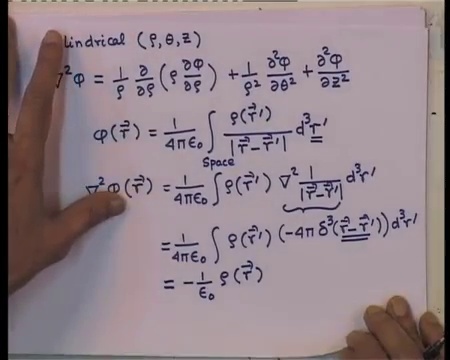 lindrical (ρ, θ, z)
∇²φ = 1/ρ ∂/∂ρ (ρ ∂φ/∂ρ) + 1/ρ² ∂²φ/∂θ² + ∂²φ/∂z²
φ(r⃗) = 1/4πε₀ ∫ ρ(r⃗′)/|r⃗−r⃗′| d³r′
Space
∇²φ(r⃗) = 1/4πε₀ ∫ ρ(r⃗′) ∇² 1/|r⃗−r⃗′| d³r′
= 1/4πε₀ ∫ ρ(r⃗′) (−4π δ³(r⃗−r⃗′)) d³r′
= −1/ε₀ ρ(r⃗)